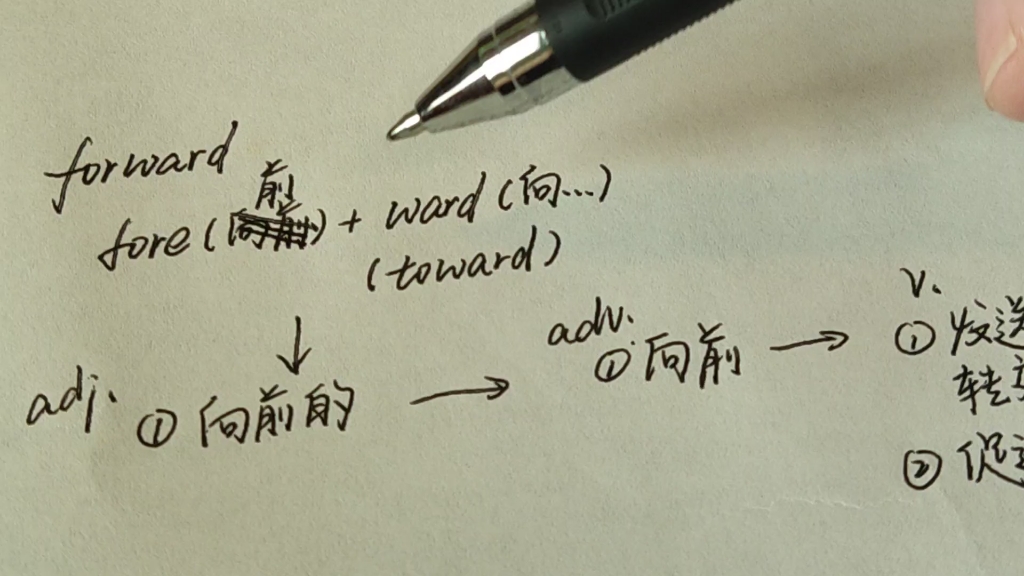 forward
前
fore(向前) + ward (向...)
(toward)
adj. ① 向前的 → adv. ① 向前 → v. ① 发送
转
② 促